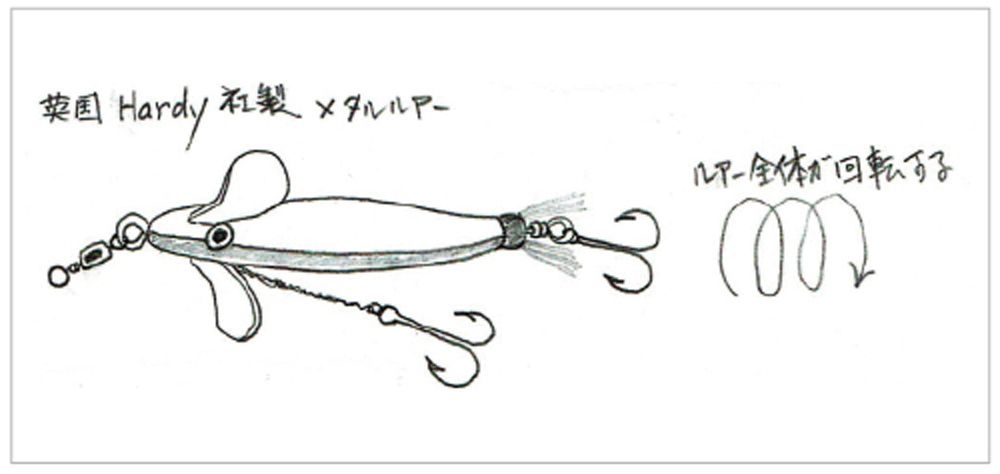 英国 Hardy 社製 メタルルアー
ルアー全体が回転する